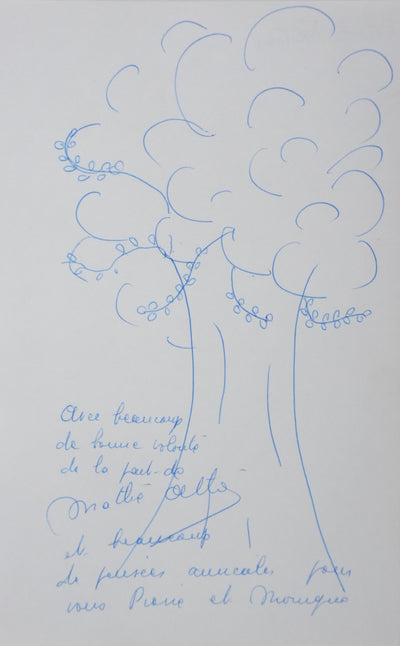 Avec beaucoup
de bonne volonté
de la part de
Mathé Altéry
et beaucoup
de pensées amicales pour
vous Pierre et Monique